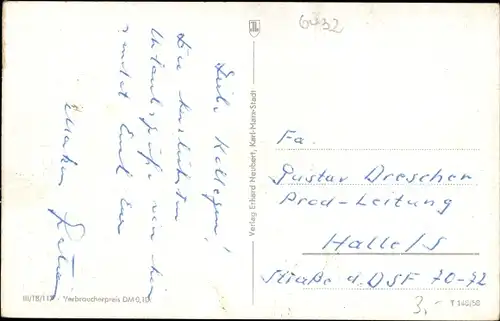 6032
Liebe Kollegen!
Die herzlichsten
Urlaubsgrüße von hier
sendet Euch Euer
Verlag Erhard Neubert, Karl-Marx-Stadt
Fa.
Gustav Drescher
Prod-Leitung
Halle/S
Straße d. DSF 70-72
3,-
III/18/117 · Verbraucherpreis DM 0,10
T 146/58